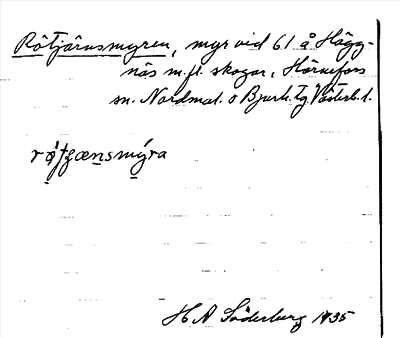 Rötjärnsmyren, myr vid 6.1 å Hägg-
näs m.fl. skogar, Hörnefors
sn. Nordmal. o Bjurh. tg Västerb. l.
røtʒænsmýra
H A Söderberg 1935